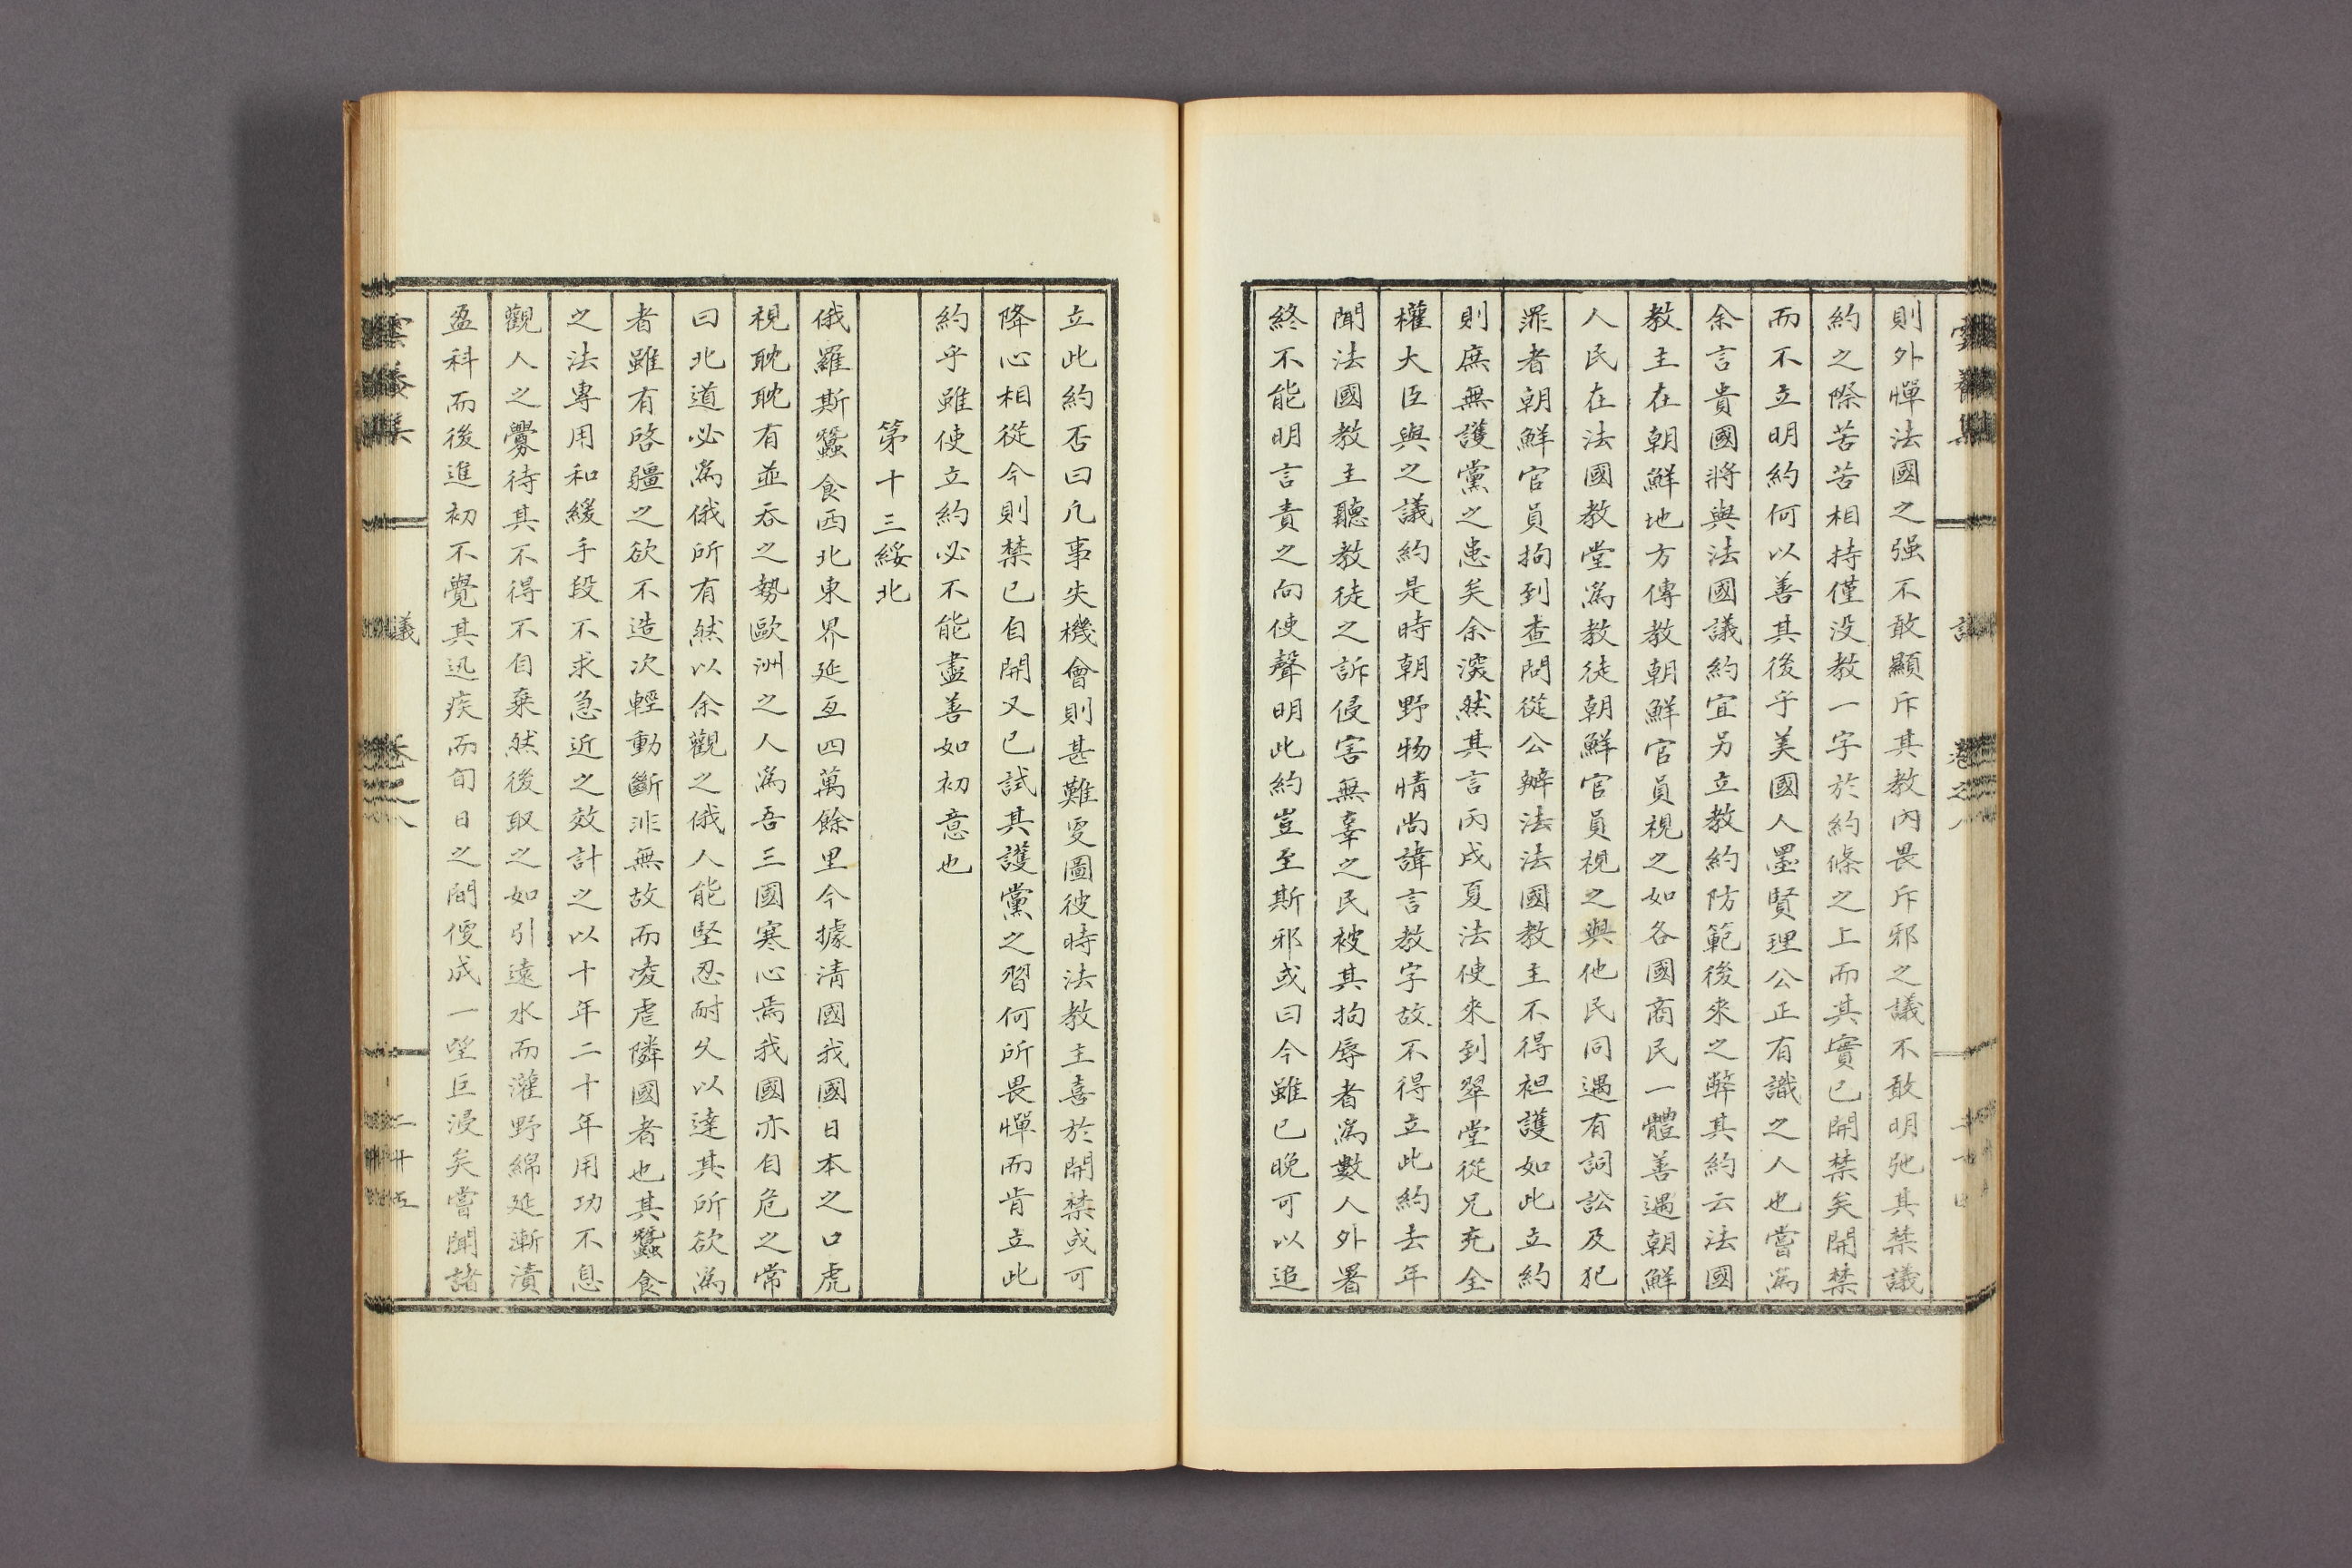 則外憚法國之强不敢顯斥其教內畏斥邪之議不敢明弛其禁議
約之際苦苦相持僅没教一字於約條之上而其實已開禁矣開禁
而不立明約何以善其後乎美國人墨賢理公正有識之人也嘗爲
余言貴國將與法國議約宜另立教約防範後來之弊其約云法國
教主在朝鮮地方傳教朝鮮官員視之如各國商民一體善遇朝鮮
人民在法國教堂爲教徒朝鮮官員視之與他民同遇有詞訟及犯
罪者朝鮮官員拘到查問從公辦法法國教主不得袒護如此立約
則庶無護黨之患矣余深然其言丙戌夏法使來到翠堂從兄充全
權大臣與之議約是時朝野物情尚諱言教字故不得立此約去年
聞法國教主聽教徒之訴侵害無辜之民被其拘辱者爲數人外署
終不能明言責之向使聲明此約豈至斯邪或曰今雖已晚可以追
立此約否曰凡事失機會則甚難更圖彼時法教主喜於開禁或可
降心相從今則禁已自開又已試其護黨之習何所畏憚而肯立此
約乎雖使立約必不能盡善如初意也
第十三綏北
俄羅斯蠶食西北東界延亙四萬餘里今據淸國我國日本之口虎
視耽耽有並呑之勢歐洲之人爲吾三國寒心焉我國亦自危之常
曰北道必爲俄所有然以余觀之俄人能堅忍耐久以達其所欲爲
者雖有啓疆之欲不造次輕動斷非無故而凌虐隣國者也其蠶食
之法專用和緩手段不求急近之效計之以十年二十年用功不息
觀人之釁待其不得不自棄然後取之如引遠水而灌野綿延漸漬
盈科而後進初不覺其迅疾而旬日之間便成一望巨浸矣嘗聞諸
議